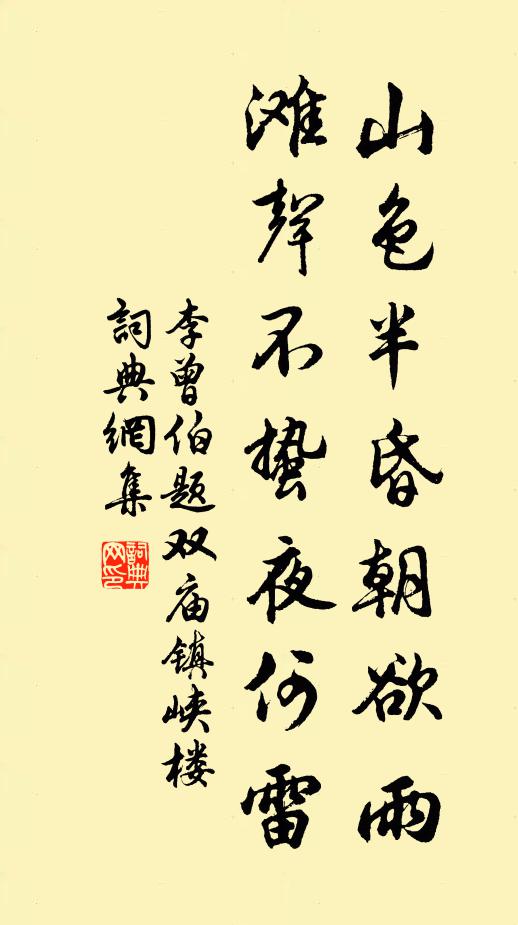 山色半昏朝欲雨
滩聲不蛰夜何雷
李曾伯题双庙镇峡楼
詞典網集
詞典网印